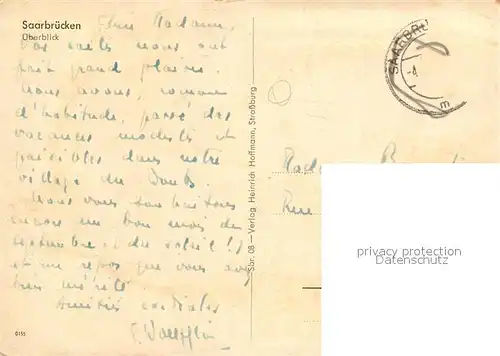 Saarbrücken
Überblick
Chère Madame,
Vos cartes nous ont
fait grand plaisir.
Nous avons, comme
d'habitude, passé des
vacances modestes et
paisibles dans notre
village du Doubs.
Nous vous souhaitons
encore un bon mois de
septembre (et du soleil!)
et un repos que vous avez
bien mérité.
Amitiés cordiales
6155
Sbr. 08 — Verlag Heinrich Hoffmann, Straßburg
SAARBRÜ
Rue
privacy protection
Datenschutz